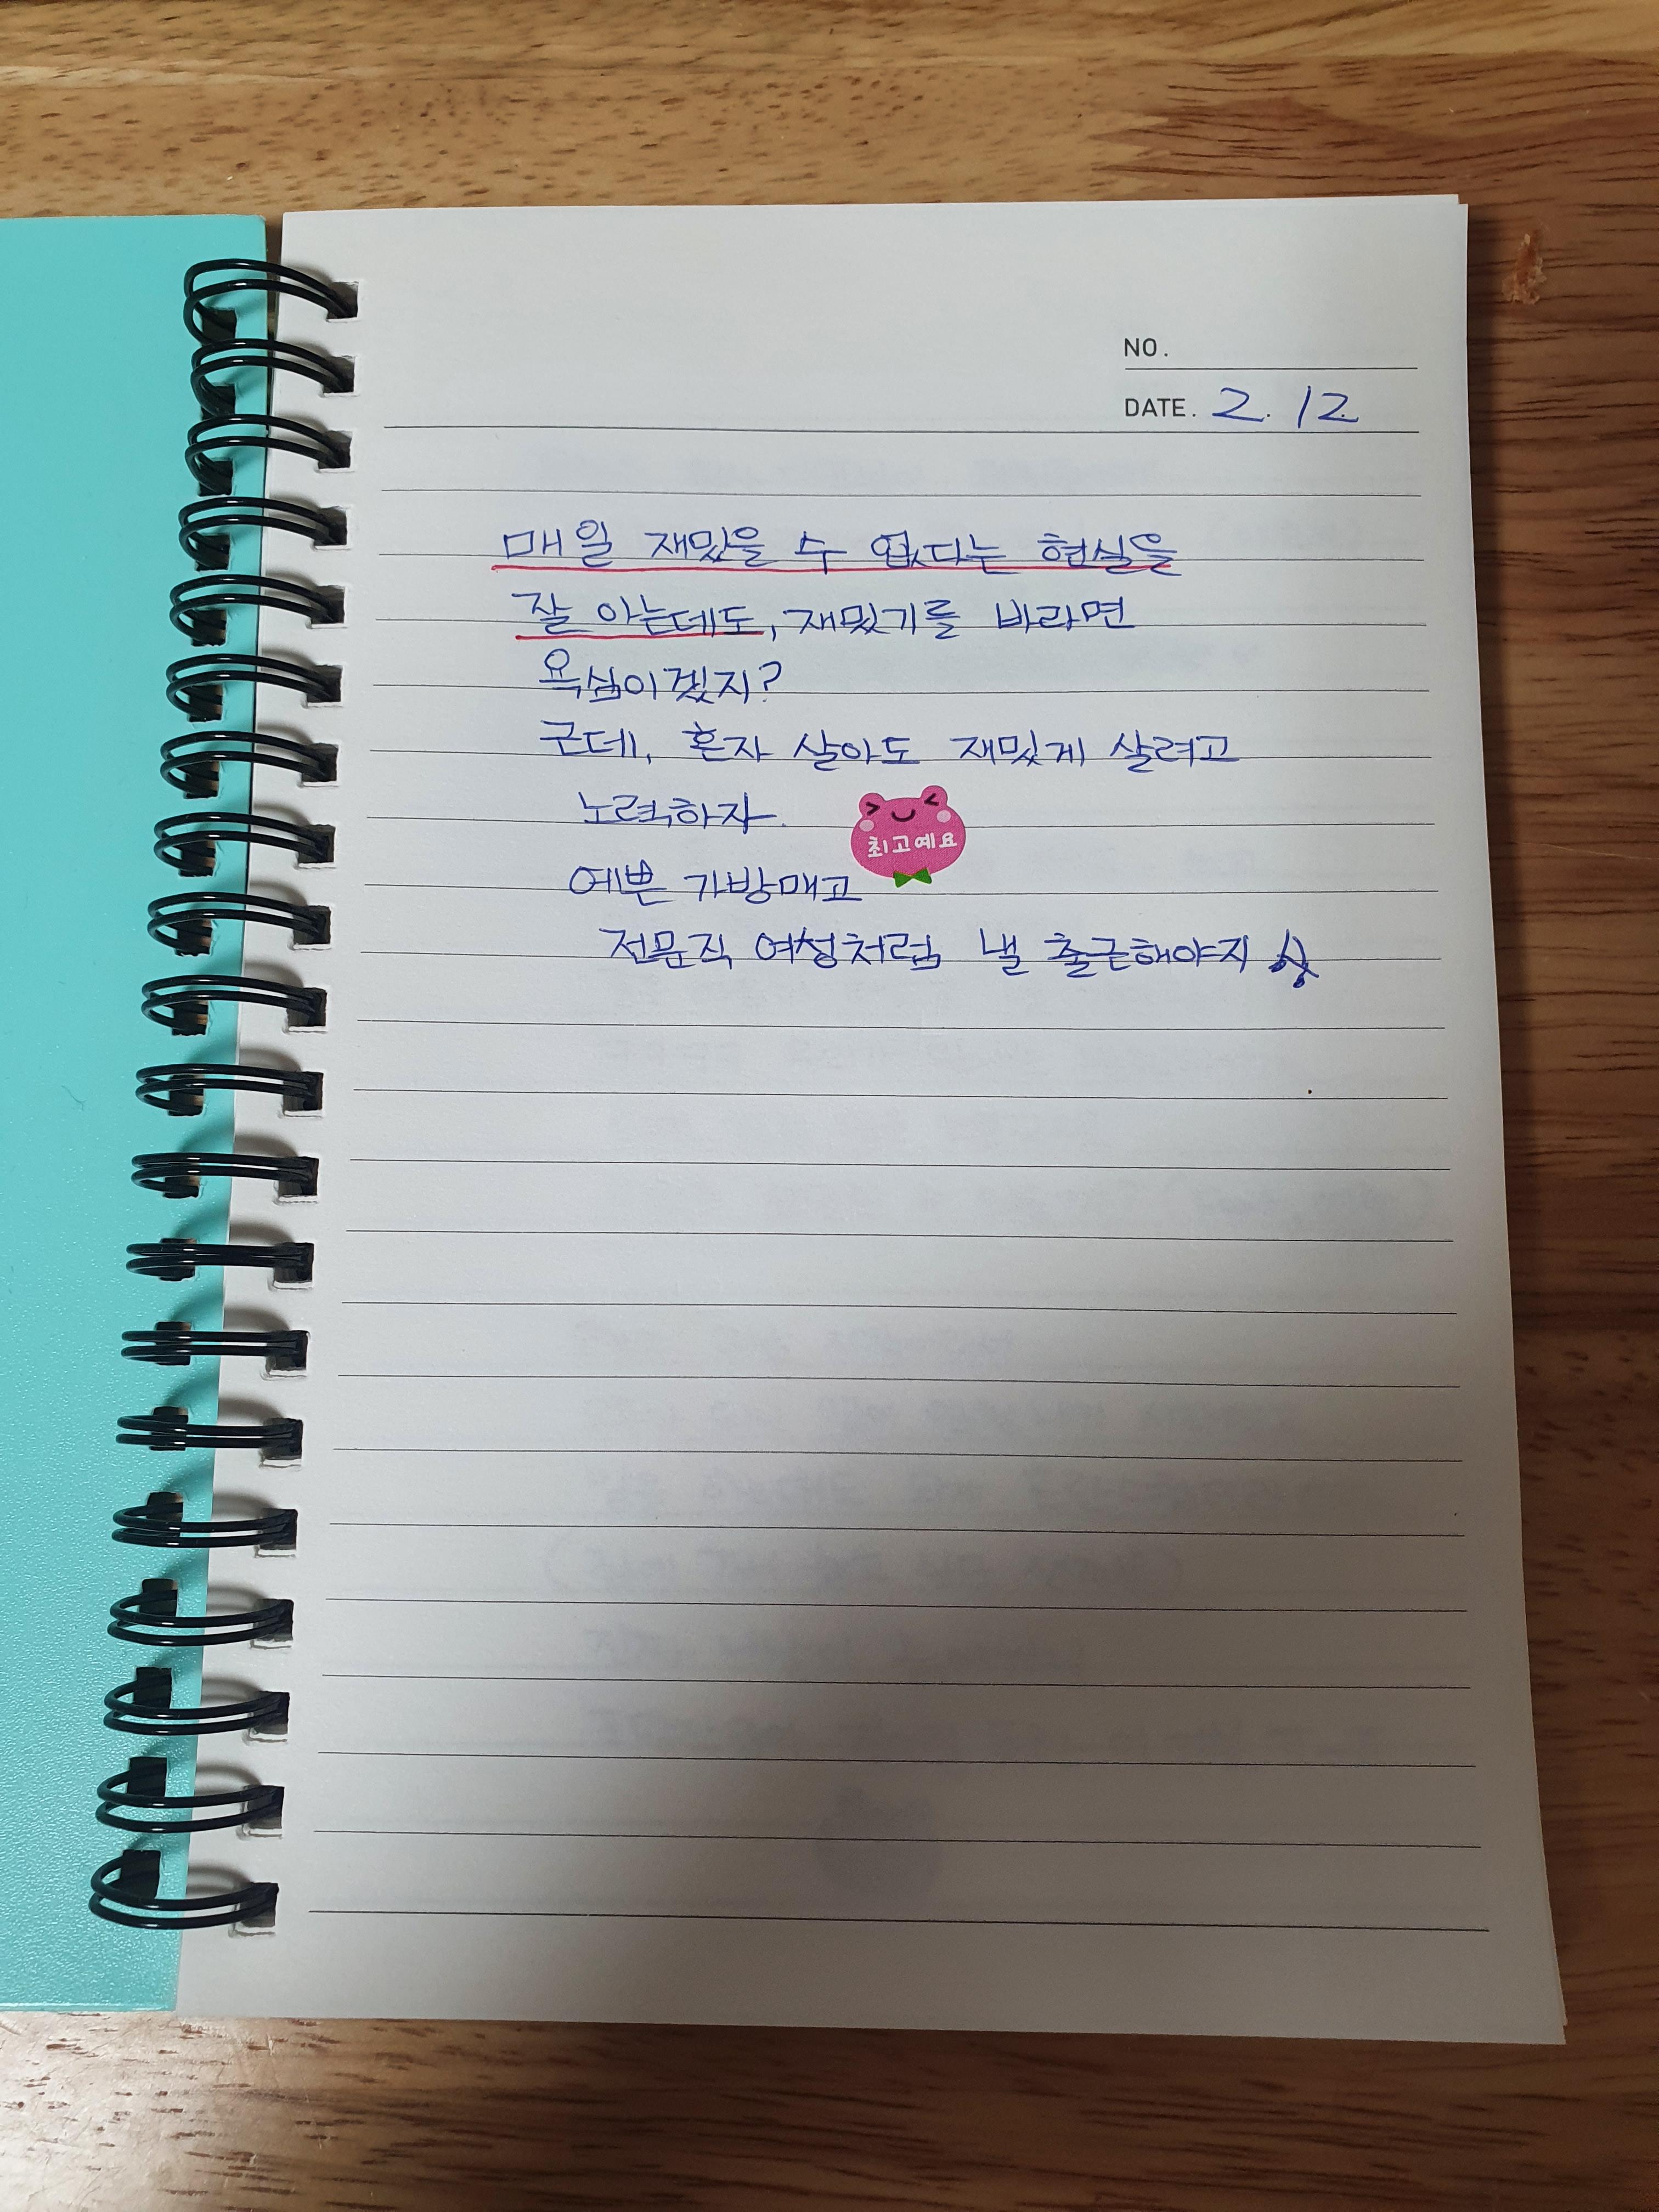 NO.
DATE. 2. 12
매일 재밌을 수 없다는 현실을
잘 아는데도, 재밌기를 바라면
욕심이겠지?
군데, 혼자 살아도 재밌게 살려고
노력하자.
최고예요
예쁜 가방매고
전문직 여성처럼 낼 출근해야지